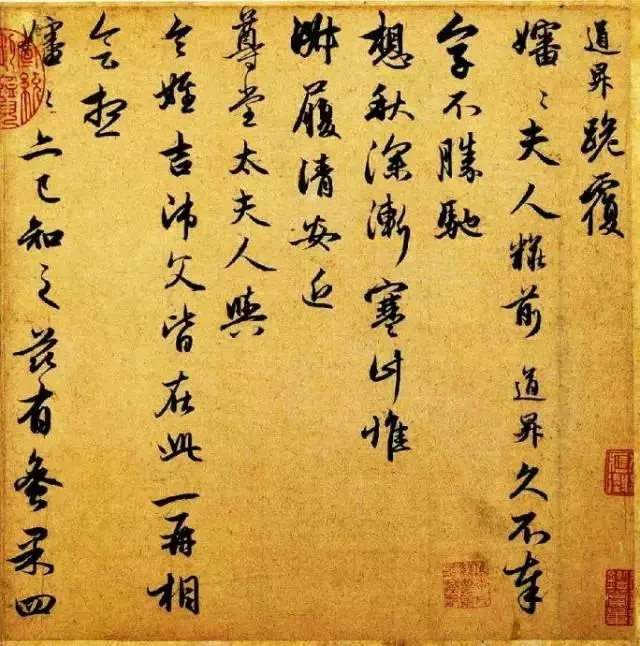 道昇跪覆
嬸〻夫人糚前道昇久不奉
字不勝馳
想秋深漸寒計惟
淑履清安近
尊堂太夫人與
令姪吉師父皆在此一再相
會想
嬸〻亦已知之茲有蚤果四